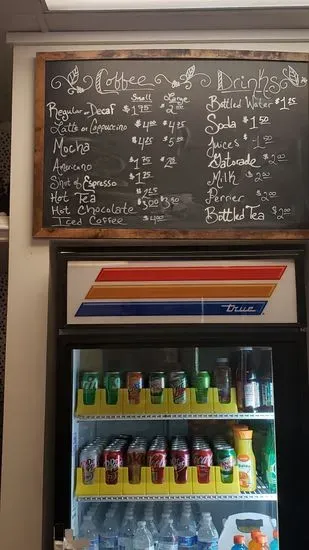 Coffee
Small Large
Regular or Decaf $1.75 $2.00
Latte or Cappuccino $4.00 $4.75
Mocha $4.25 $5.00
Americano $1.75 $2.25
Shot of Espresso $1.25
Hot Tea $2.25
Hot Chocolate $3.00 $3.50
Iced Coffee $4.00
Drinks
Bottled Water $1.25
Soda $1.50
Juices $1.50
Gatorade $2.00
Milk $2.00
Perrier $2.00
Bottled Tea $2.00
true